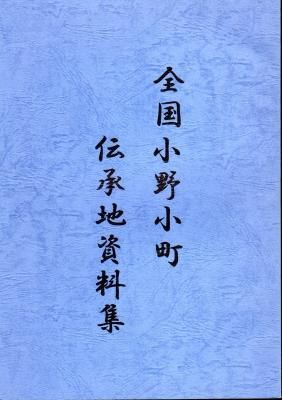 全国小野小町
伝承地資料集